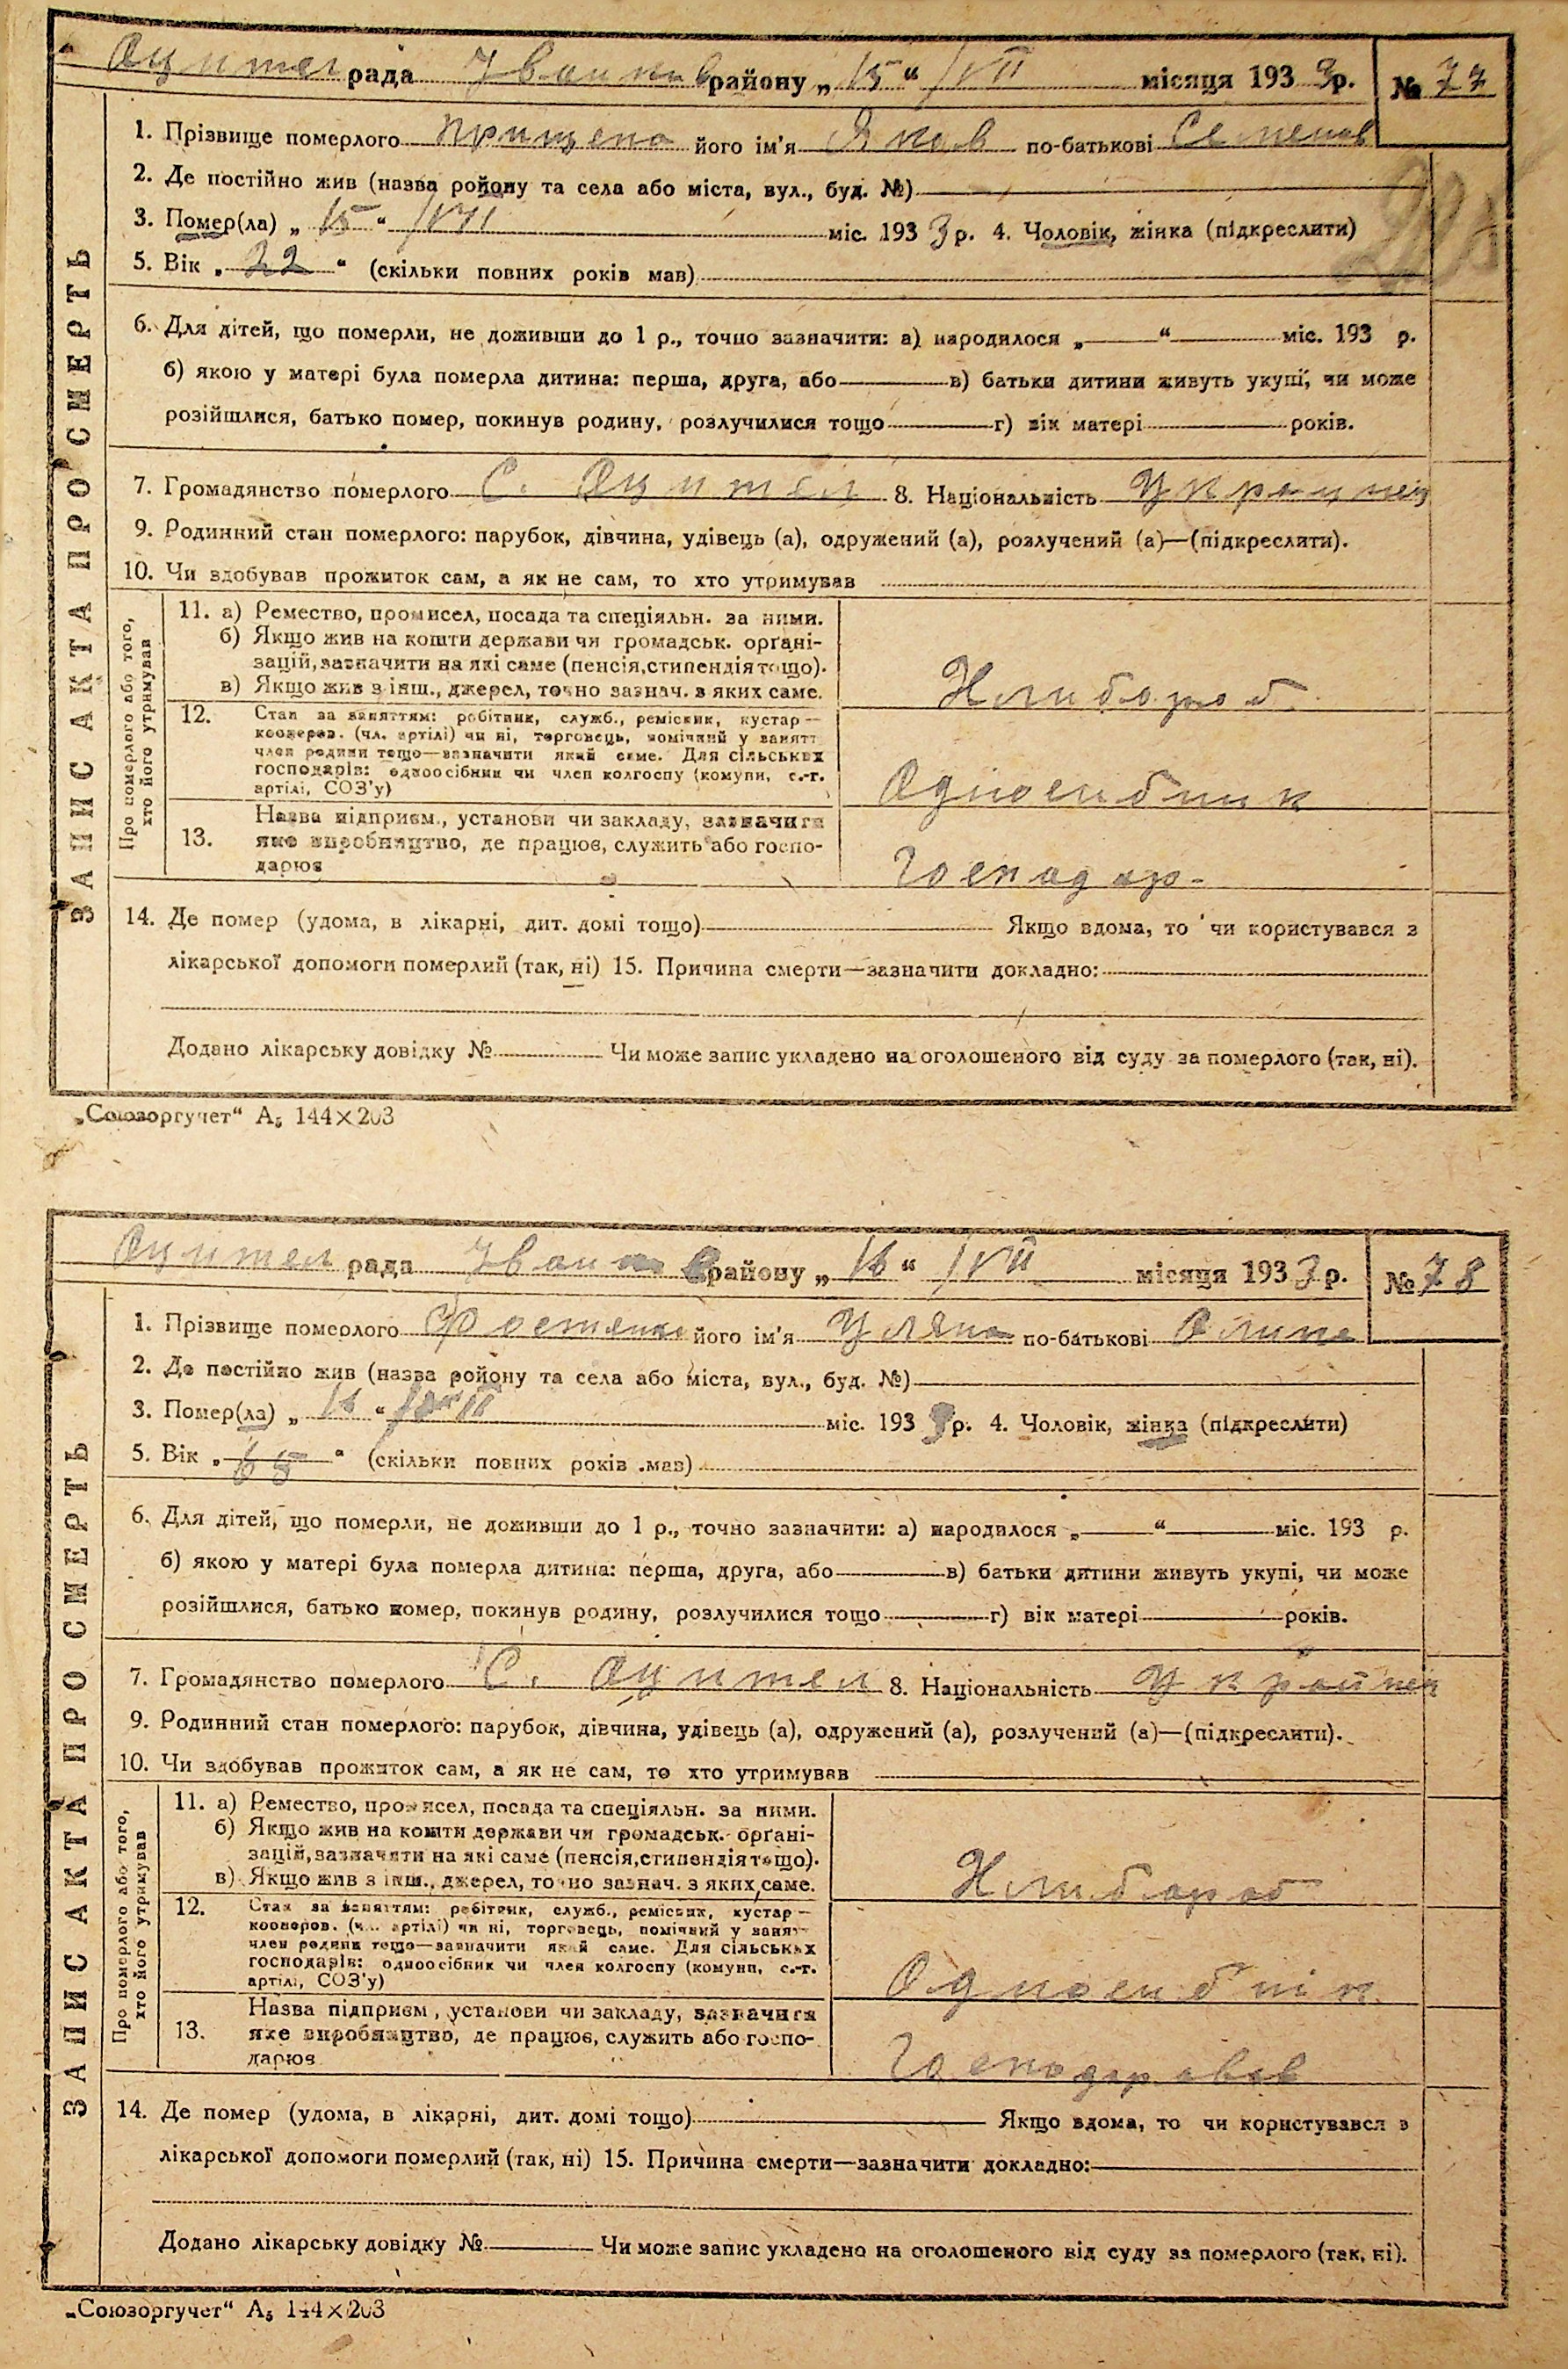 Оцител рада Іванків району „ 15 “ /VII місяця 193 3 р. № 77
1. Прізвище померлого Прищепа його ім'я Яков по-батькові Семенов
2. Де постійно жив (назва ройону та села або міста, вул., буд. №)
3. Помер(ла) „ 15 “ /VII міс. 193 3 р. 4. Чоловік, жінка (підкреслити)
5. Вік „ 22 “ (скільки повних років мав)
6. Для дітей, що померли, не доживши до 1 р., точно зазначити: а) народилося „ “ міс. 193 р.
б) якою у матері була померла дитина: перша, друга, або в) батьки дитини живуть укупі, чи може
розійшлися, батько помер, покинув родину, розлучилися тощо г) вік матері років.
7. Громадянство померлого С. Оцител 8. Національність Украинец
9. Родинний стан померлого: парубок, дівчина, удівець (а), одружений (а), розлучений (а)—(підкреслити).
10. Чи здобував прожиток сам, а як не сам, то хто утримував
ЗАПИС АКТА ПРО СМЕРТЬ
Про померлого або того, хто його утримував
11. а) Ремество, промисел, посада та спеціяльн. за ними.
б) Якщо жив на кошти держави чи громадськ. орґані-
зацій, зазначити на які саме (пенсія, стипендія тощо).
в) Якщо жив з інш., джерел, точно зазнач. з яких саме.
Хлибороб
12. Стан за заняттям: робітник, служб., ремісник, кустар—
кооперов. (чл. артілі) чи ні, торговець, помічний у занятт
член родини тощо—зазначити який саме. Для сільських
господарів: одноосібник чи член колгоспу (комуни, с.-г.
артілі, СОЗ'у)
Одноосибник
13. Назва підприєм., установи чи закладу, зазначити
яке виробництво, де працює, служить або госпо-
дарює
Господар-
14. Де помер (удома, в лікарні, дит. домі тощо) Якщо вдома, то чи користувався з
лікарської допомоги померлий (так, ні) 15. Причина смерти—зазначити докладно:
Додано лікарську довідку № Чи може запис укладено на оголошеного від суду за померлого (так, ні).
„Союзоргучет“ А₅ 144×203
Оцител рада Іванків району „ 16 “ /VII місяця 193 3 р. № 78
1. Прізвище померлого його ім'я Уляна по-батькові
2. Де постійно жив (назва ройону та села або міста, вул., буд. №)
3. Помер(ла) „ 16 “ VII міс. 193 3 р. 4. Чоловік, жінка (підкреслити)
5. Вік „ 65 “ (скільки повних років мав)
6. Для дітей, що померли, не доживши до 1 р., точно зазначити: а) народилося „ “ міс. 193 р.
б) якою у матері була померла дитина: перша, друга, або в) батьки дитини живуть укупі, чи може
розійшлися, батько помер, покинув родину, розлучилися тощо г) вік матері років.
7. Громадянство померлого С. Оцител 8. Національність Украинец
9. Родинний стан померлого: парубок, дівчина, удівець (а), одружений (а), розлучений (а)—(підкреслити).
10. Чи здобував прожиток сам, а як не сам, то хто утримував
ЗАПИС АКТА ПРО СМЕРТЬ
Про померлого або того, хто його утримував
11. а) Ремество, промисел, посада та спеціяльн. за ними.
б) Якщо жив на кошти держави чи громадськ. орґані-
зацій, зазначити на які саме (пенсія, стипендія тощо).
в) Якщо жив з інш., джерел, точно зазнач. з яких саме.
Хлибороб
12. Стан за заняттям: робітник, служб., ремісник, кустар—
кооперов. (чл. артілі) чи ні, торговець, помічний у занятт
член родини тощо—зазначити який саме. Для сільських
господарів: одноосібник чи член колгоспу (комуни, с.-г.
артілі, СОЗ'у)
Одноосибнік
13. Назва підприєм., установи чи закладу, зазначити
яке виробництво, де працює, служить або госпо-
дарює
Господарював
14. Де помер (удома, в лікарні, дит. домі тощо) Якщо вдома, то чи користувався з
лікарської допомоги померлий (так, ні) 15. Причина смерти—зазначити докладно:
Додано лікарську довідку № Чи може запис укладено на оголошеного від суду за померлого (так, ні).
„Союзоргучет“ А₅ 144×203